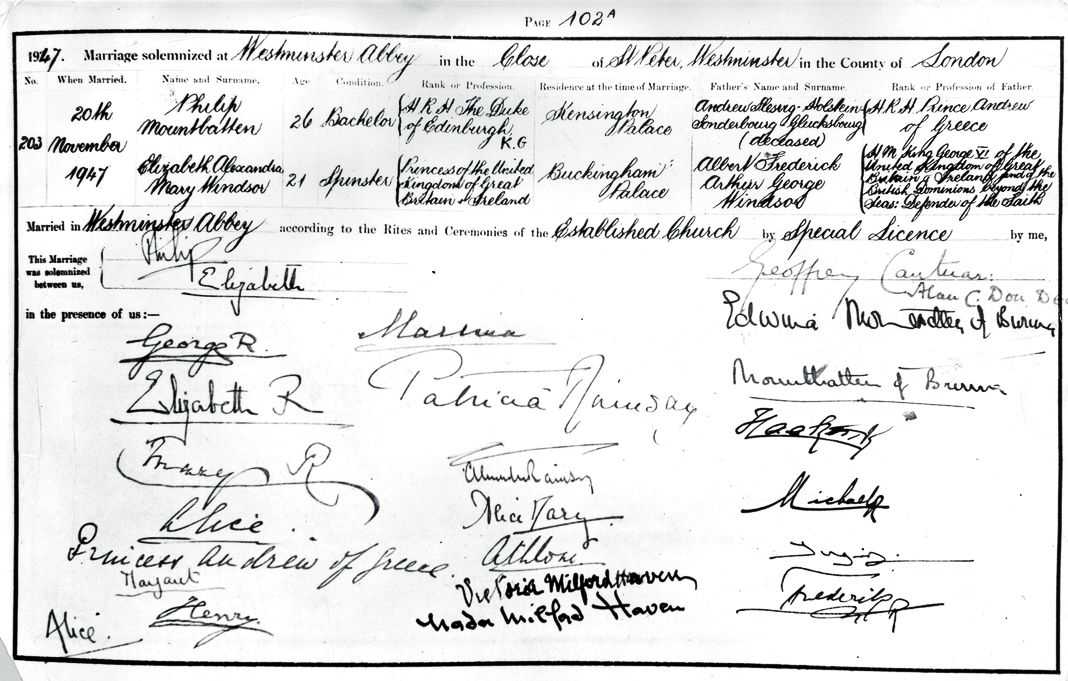 PAGE 102A
1947. Marriage solemnized at Westminster Abbey in the Close of St Peter, Westminster in the County of London
No. When Married. Name and Surname. Age Condition. Rank or Profession. Residence at the time of Marriage. Father's Name and Surname. Rank or Profession of Father.
203
20th
November
1947
Philip
Mountbatten
26
Bachelor
H.R.H The Duke
of Edinburgh,
K.G
Kensington
Palace
Andrew Slesvig-Holstein
Sonderbourg Glucksbourg
(deceased)
H.R.H Prince Andrew
of Greece
Elizabeth Alexandra
Mary Windsor
21
Spinster
Princess of the United
Kingdom of Great
Britain & Ireland
Buckingham
Palace
Albert Frederick
Arthur George
Windsor
H M King George VI of the
United Kingdom of Great
Britain & Ireland and of the
British Dominions beyond the
Seas: Defender of the Faith
Married in Westminster Abbey according to the Rites and Ceremonies of the Established Church by Special Licence by me,
This Marriage
was solemnized
between us,
Philip
Elizabeth
Geoffrey Cantuar:
Alan C. Don
in the presence of us:—
George R.
Elizabeth R
Mary R
Alice.
Princess Andrew of Greece
Margaret
Henry.
Alice.
Marina
Patricia Ramsay
Alexander Ramsay
Alice Mary
Athlone
Victoria Milford Haven
Nada Milford Haven
Edwina Mountbatten of Burma
Mountbatten of Burma
Haakon R
Michael R
Frederik R